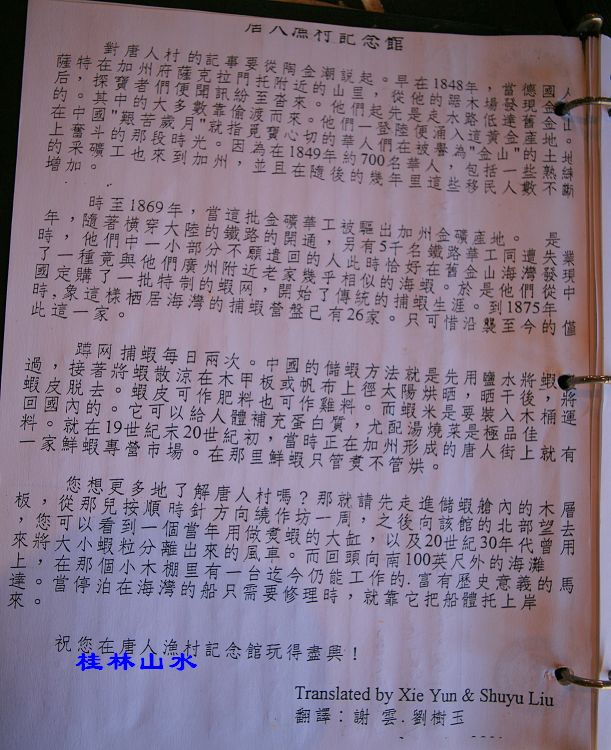 唐人漁村記念館
對唐人村的記事要從陶金潮說起。早在1848年,當德國人
薩特在加州府薩克拉門托附近的山里,從他的踞木場發現金
后,探寶者們便開紛至沓來。他們起先是走水路低達舊金山。
的。其中的大多數就靠渡而來。他們一登陸便涌入這黃金產地。
在中國"艱苦歲月"指偷覓寶心切的華人們在被譽為"金山"的土地
上奮斗的那段時光。因為在1849年約700名華人,包括一些熟練
的采礦工也來到加州,並且在隨後的幾年里這些移民人數不斷
增加。
時至1869年,當這批金礦華工被驅出加州金礦產地。是
年,隨著橫穿大陸的鐵路的開通,另有5千名鐵路華工同遭失業
時,他們中一小部分不願遺回的人此時恰好在舊金山海灣發現
了一種竟與他們廣州附近老家幾乎相似的海蝦。於是他們從中
國定購了一批特制的蝦网,開始了傳統的捕蝦生涯。到1875年
時,象這樣栖居海灣的捕蝦營盤已有26家。只可惜沿襲至今的僅
此這一家。
蹲网捕蝦每日兩次。中國的儲蝦方法就是先用鹽水將蝦
過,接著將蝦散涼在木甲板或帆布上徑太陽烘晒,晒干後,將
蝦皮脫去。蝦皮可作肥料也可作雞料。而蝦米是要裝入木桶運
回國內的。它可以給人體補充蛋白質,尤配湯燒菜是極品佳
料。就在19世紀末20世紀初,當時正在加州形成的唐人街上就有
一家鮮蝦專營市場。在那里鮮蝦只管煑不管烘。
您想更多地了解唐人村嗎?那就請先走進儲蝦艙內的木層
板,從那兒按順時針方向繞作坊一周,之後向該館的北部望去
,您可以看到一個當年用做煑蝦的大缸,以及20世紀30年代曾用
來將大小蝦粒分離出來的風車。而回頭向南100英尺外的海灘
上,在那個小木棚里有一台迄今仍能工作的.富有歷史意義的馬
達。當停泊在海灣的船只需要修理時,就靠它把船體托上岸
來。
祝您在唐人漁村記念館玩得盡興!
桂林山水
Translated by Xie Yun & Shuyu Liu
翻譯:謝雲.劉樹玉